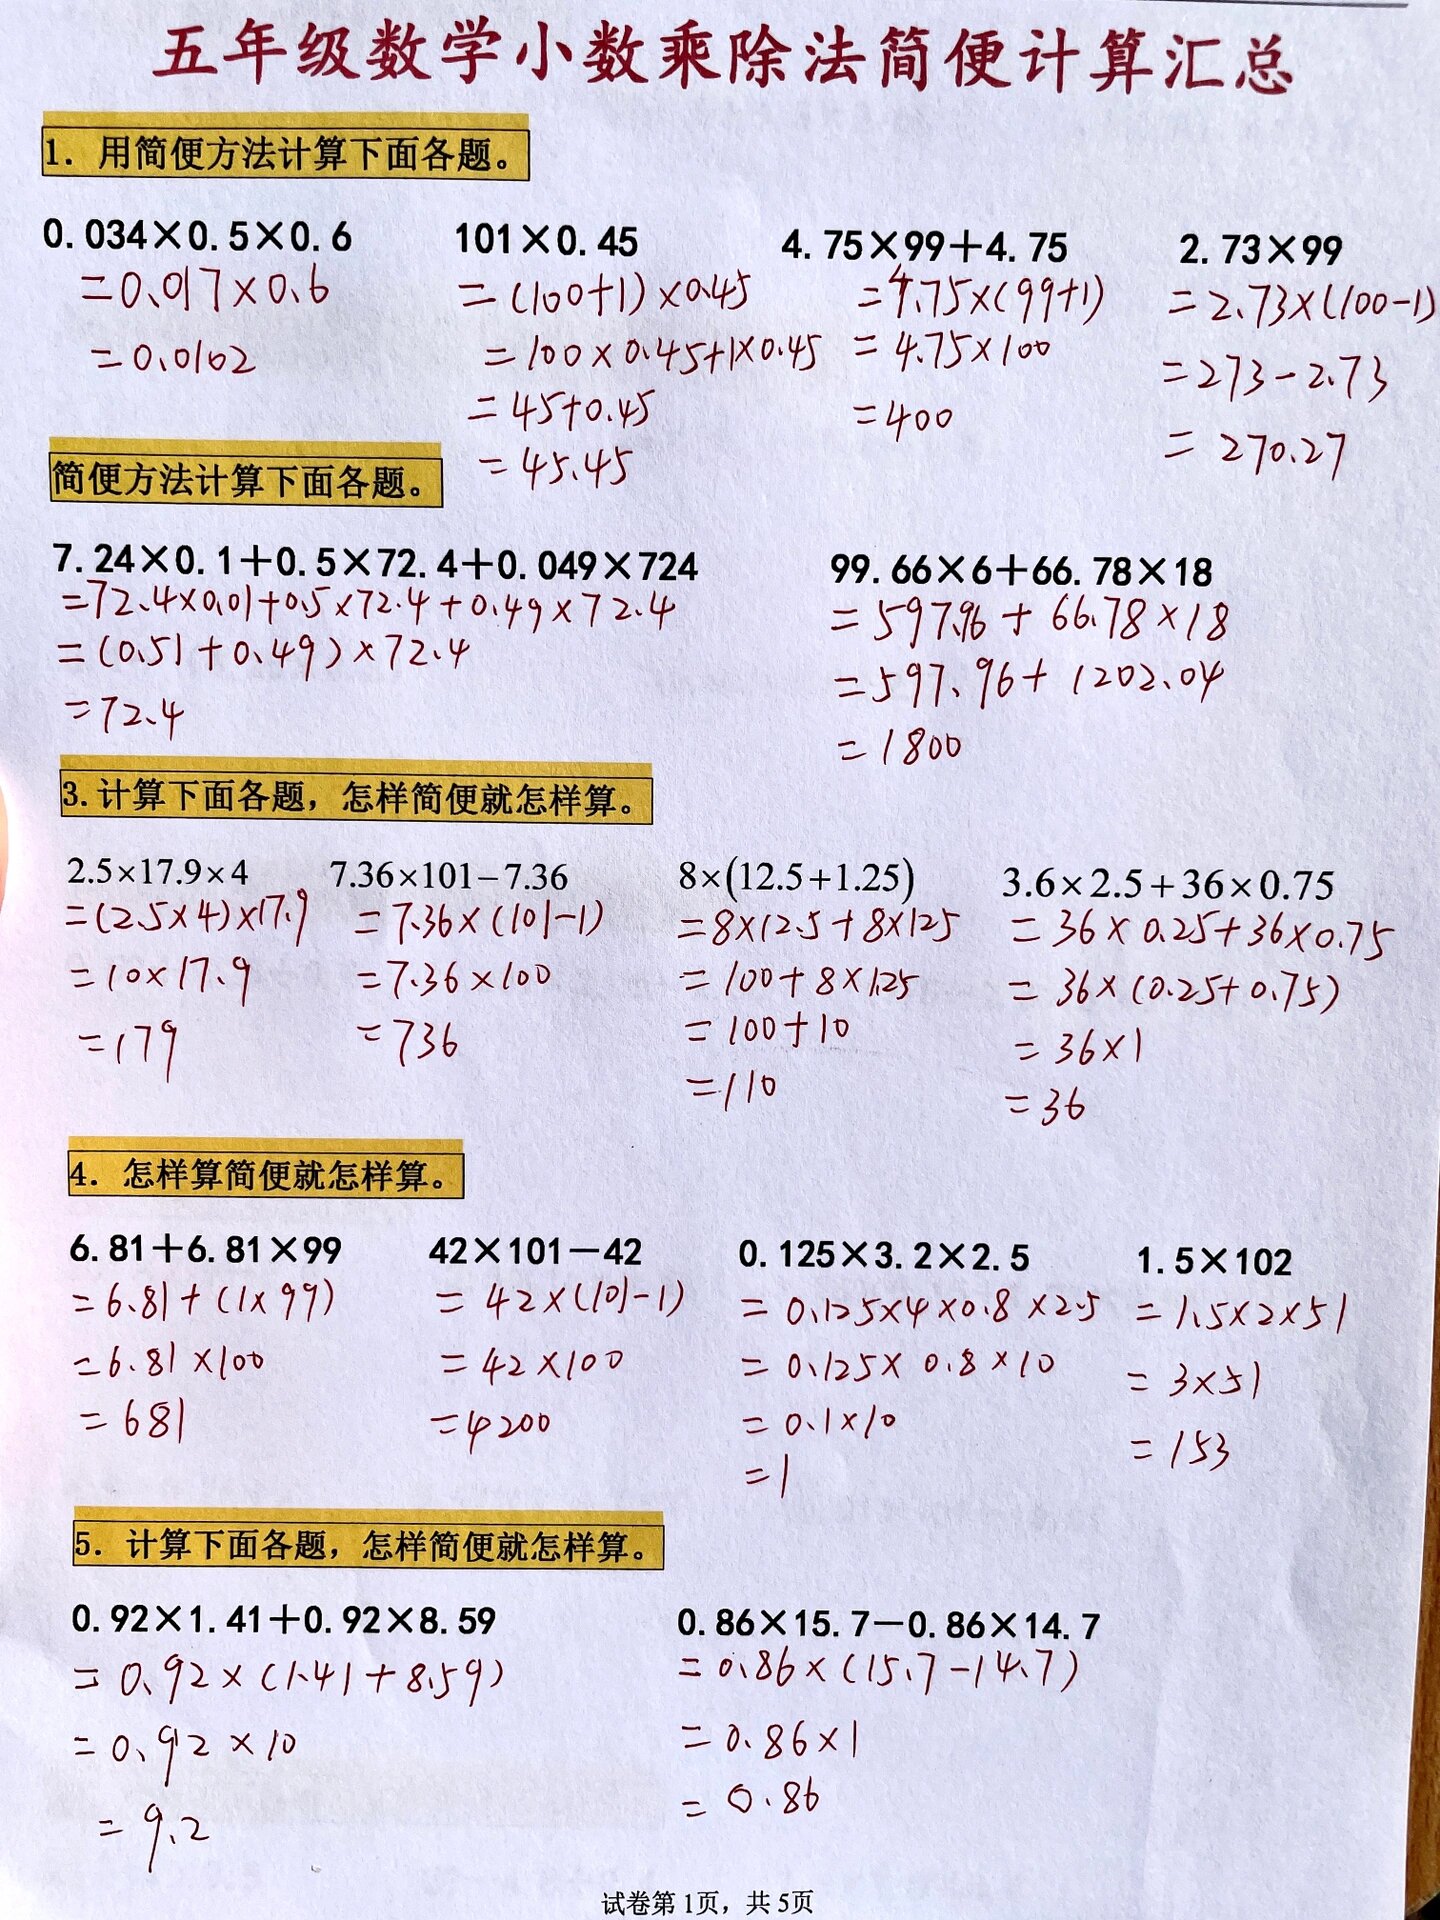 五年级数学小数乘除法简便计算汇总
1. 用简便方法计算下面各题。
0.034×0.5×0.6 101×0.45 4.75×99+4.75 2.73×99
=0.017×0.6 =(100+1)×0.45 =4.75×(99+1) =2.73×(100-1)
=0.0102 =100×0.45+1×0.45 =4.75×100 =273-2.73
=45+0.45 =400 =270.27
=45.45
简便方法计算下面各题。
7.24×0.1+0.5×72.4+0.049×724 99.66×6+66.78×18
=72.4×0.01+0.5×72.4+0.49×72.4 =597.96+66.78×18
=(0.51+0.49)×72.4 =597.96+1202.04
=72.4 =1800
3.计算下面各题，怎样简便就怎样算。
2.5×17.9×4 7.36×101-7.36 8×(12.5+1.25) 3.6×2.5+36×0.75
=(2.5×4)×17.9 =7.36×(101-1) =8×12.5+8×125 =36×0.25+36×0.75
=10×17.9 =7.36×100 =100+8×1.25 =36×(0.25+0.75)
=179 =736 =100+10 =36×1
=110 =36
4. 怎样算简便就怎样算。
6.81+6.81×99 42×101-42 0.125×3.2×2.5 1.5×102
=6.81+(1×99) =42×(101-1) =0.125×4×0.8×2.5 =1.5×2×51
=6.81×100 =42×100 =0.125×0.8×10 =3×51
=681 =4200 =0.1×10 =153
=1
5. 计算下面各题，怎样简便就怎样算。
0.92×1.41+0.92×8.59 0.86×15.7-0.86×14.7
=0.92×(1.41+8.59) =0.86×(15.7-14.7)
=0.92×10 =0.86×1
=9.2 =0.86
试卷第1页，共5页